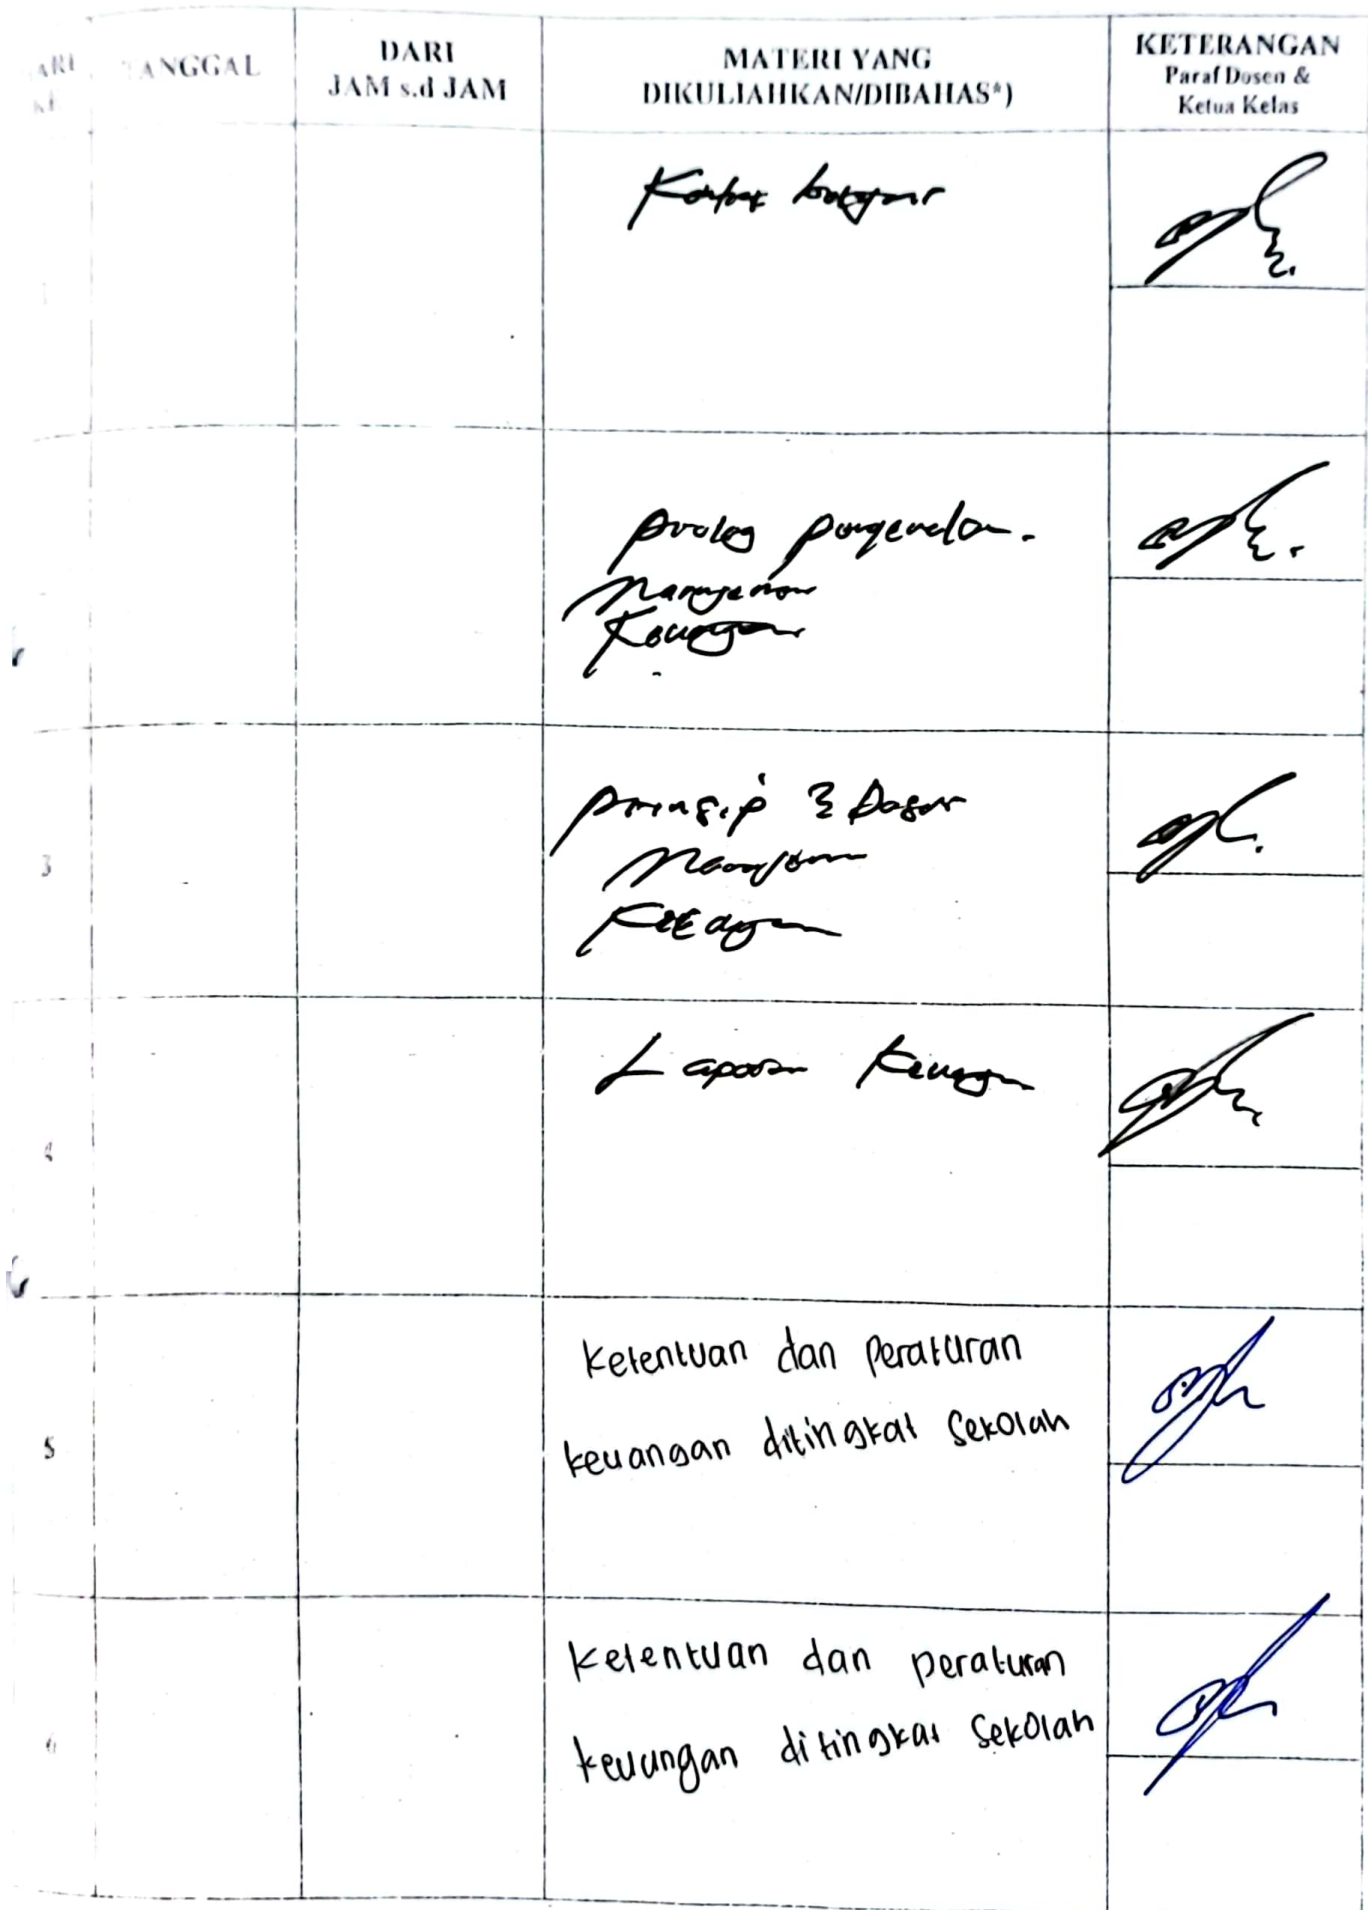 TANGGAL
DARI
JAM s.d JAM
MATERI YANG
DIKULIAHKAN/DIBAHAS*)
KETERANGAN
Paraf Dosen &
Ketua Kelas
1
Kontrak belajar
prolog pengenalan.
Manajemen
Keuangan
3
prinsip & Dasar
Manajemen
Keuangan
4
Laporan Keuangan
5
Ketentuan dan Peraturan
keuangan ditingkat Sekolah
6
Ketentuan dan peraturan
keuangan ditingkat Sekolah